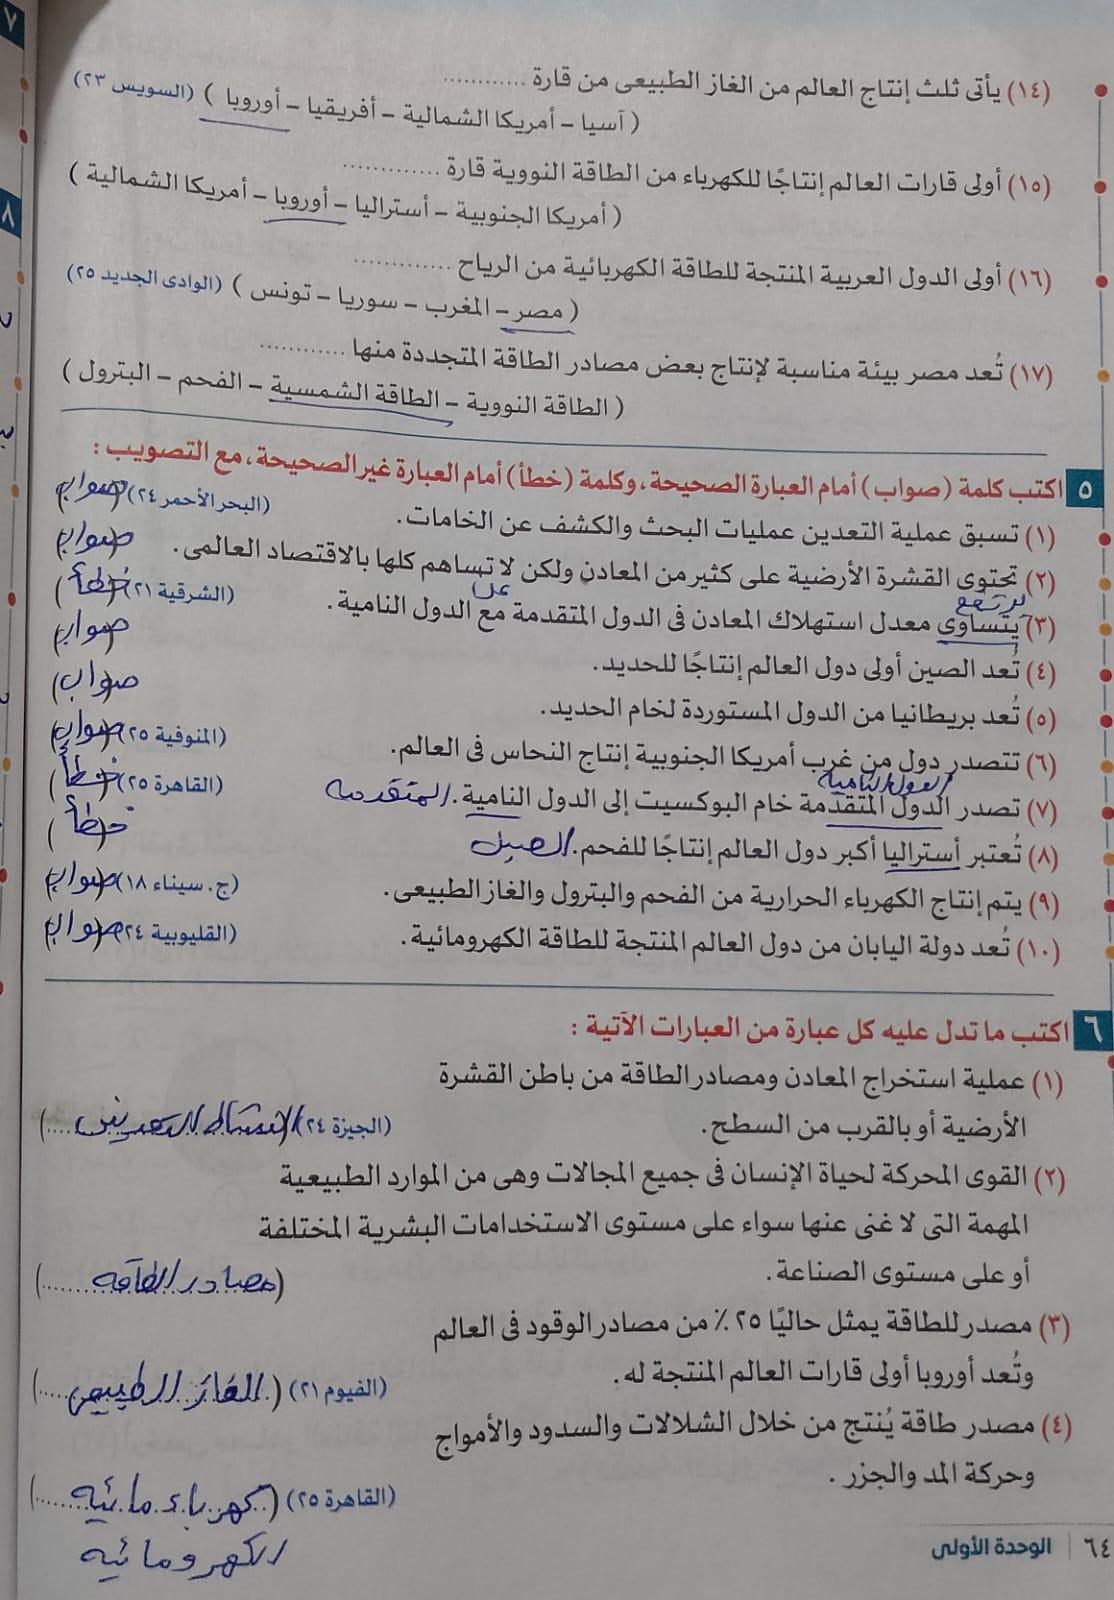 (١٤) يأتى ثلث إنتاج العالم من الغاز الطبيعى من قارة ............
( آسيا – أمريكا الشمالية – أفريقيا – أوروبا ) (السويس ٢٣)
(١٥) أولى قارات العالم إنتاجًا للكهرباء من الطاقة النووية قارة ............
( أمريكا الجنوبية – أستراليا – أوروبا – أمريكا الشمالية )
(١٦) أولى الدول العربية المنتجة للطاقة الكهربائية من الرياح ............
( مصر – المغرب – سوريا – تونس ) (الوادى الجديد ٢٥)
(١٧) تُعد مصر بيئة مناسبة لإنتاج بعض مصادر الطاقة المتجددة منها ............
( الطاقة النووية – الطاقة الشمسية – الفحم – البترول )
٥ اكتب كلمة (صواب) أمام العبارة الصحيحة، وكلمة (خطأ) أمام العبارة غير الصحيحة، مع التصويب :
(١) تسبق عملية التعدين عمليات البحث والكشف عن الخامات. (البحر الأحمر ٢٤) (صواب)
(٢) تحتوى القشرة الأرضية على كثير من المعادن ولكن لا تساهم كلها بالاقتصاد العالمى. (صواب)
يرتفع عن
(٣) يتساوى معدل استهلاك المعادن فى الدول المتقدمة مع الدول النامية. (الشرقية ٢١) (خطأ)
(٤) تُعد الصين أولى دول العالم إنتاجًا للحديد. (صواب)
(٥) تُعد بريطانيا من الدول المستوردة لخام الحديد. (صواب)
(٦) تتصدر دول من غرب أمريكا الجنوبية إنتاج النحاس فى العالم. (المنوفية ٢٥) (صواب)
الدول النامية
(٧) تصدر الدول المتقدمة خام البوكسيت إلى الدول النامية. المتقدمة (القاهرة ٢٥) (خطأ)
(٨) تُعتبر أستراليا أكبر دول العالم إنتاجًا للفحم. الصين (خطأ)
(٩) يتم إنتاج الكهرباء الحرارية من الفحم والبترول والغاز الطبيعى. (ج. سيناء ١٨) (صواب)
(١٠) تُعد دولة اليابان من دول العالم المنتجة للطاقة الكهرومائية. (القليوبية ٢٤) (صواب)
٦ اكتب ما تدل عليه كل عبارة من العبارات الآتية :
(١) عملية استخراج المعادن ومصادر الطاقة من باطن القشرة
الأرضية أو بالقرب من السطح. (الجيزة ٢٤) (النشاط التعدينى)
(٢) القوى المحركة لحياة الإنسان فى جميع المجالات وهى من الموارد الطبيعية
المهمة التى لا غنى عنها سواء على مستوى الاستخدامات البشرية المختلفة
أو على مستوى الصناعة. (مصادر الطاقة)
(٣) مصدر للطاقة يمثل حاليًا ٢٥ ٪ من مصادر الوقود فى العالم
وتُعد أوروبا أولى قارات العالم المنتجة له. (الفيوم ٢١) (الغاز الطبيعى)
(٤) مصدر طاقة يُنتج من خلال الشلالات والسدود والأمواج
وحركة المد والجزر . (القاهرة ٢٥) (كهرباء مائية)
الكهرومائية
٦٤ | الوحدة الأولى